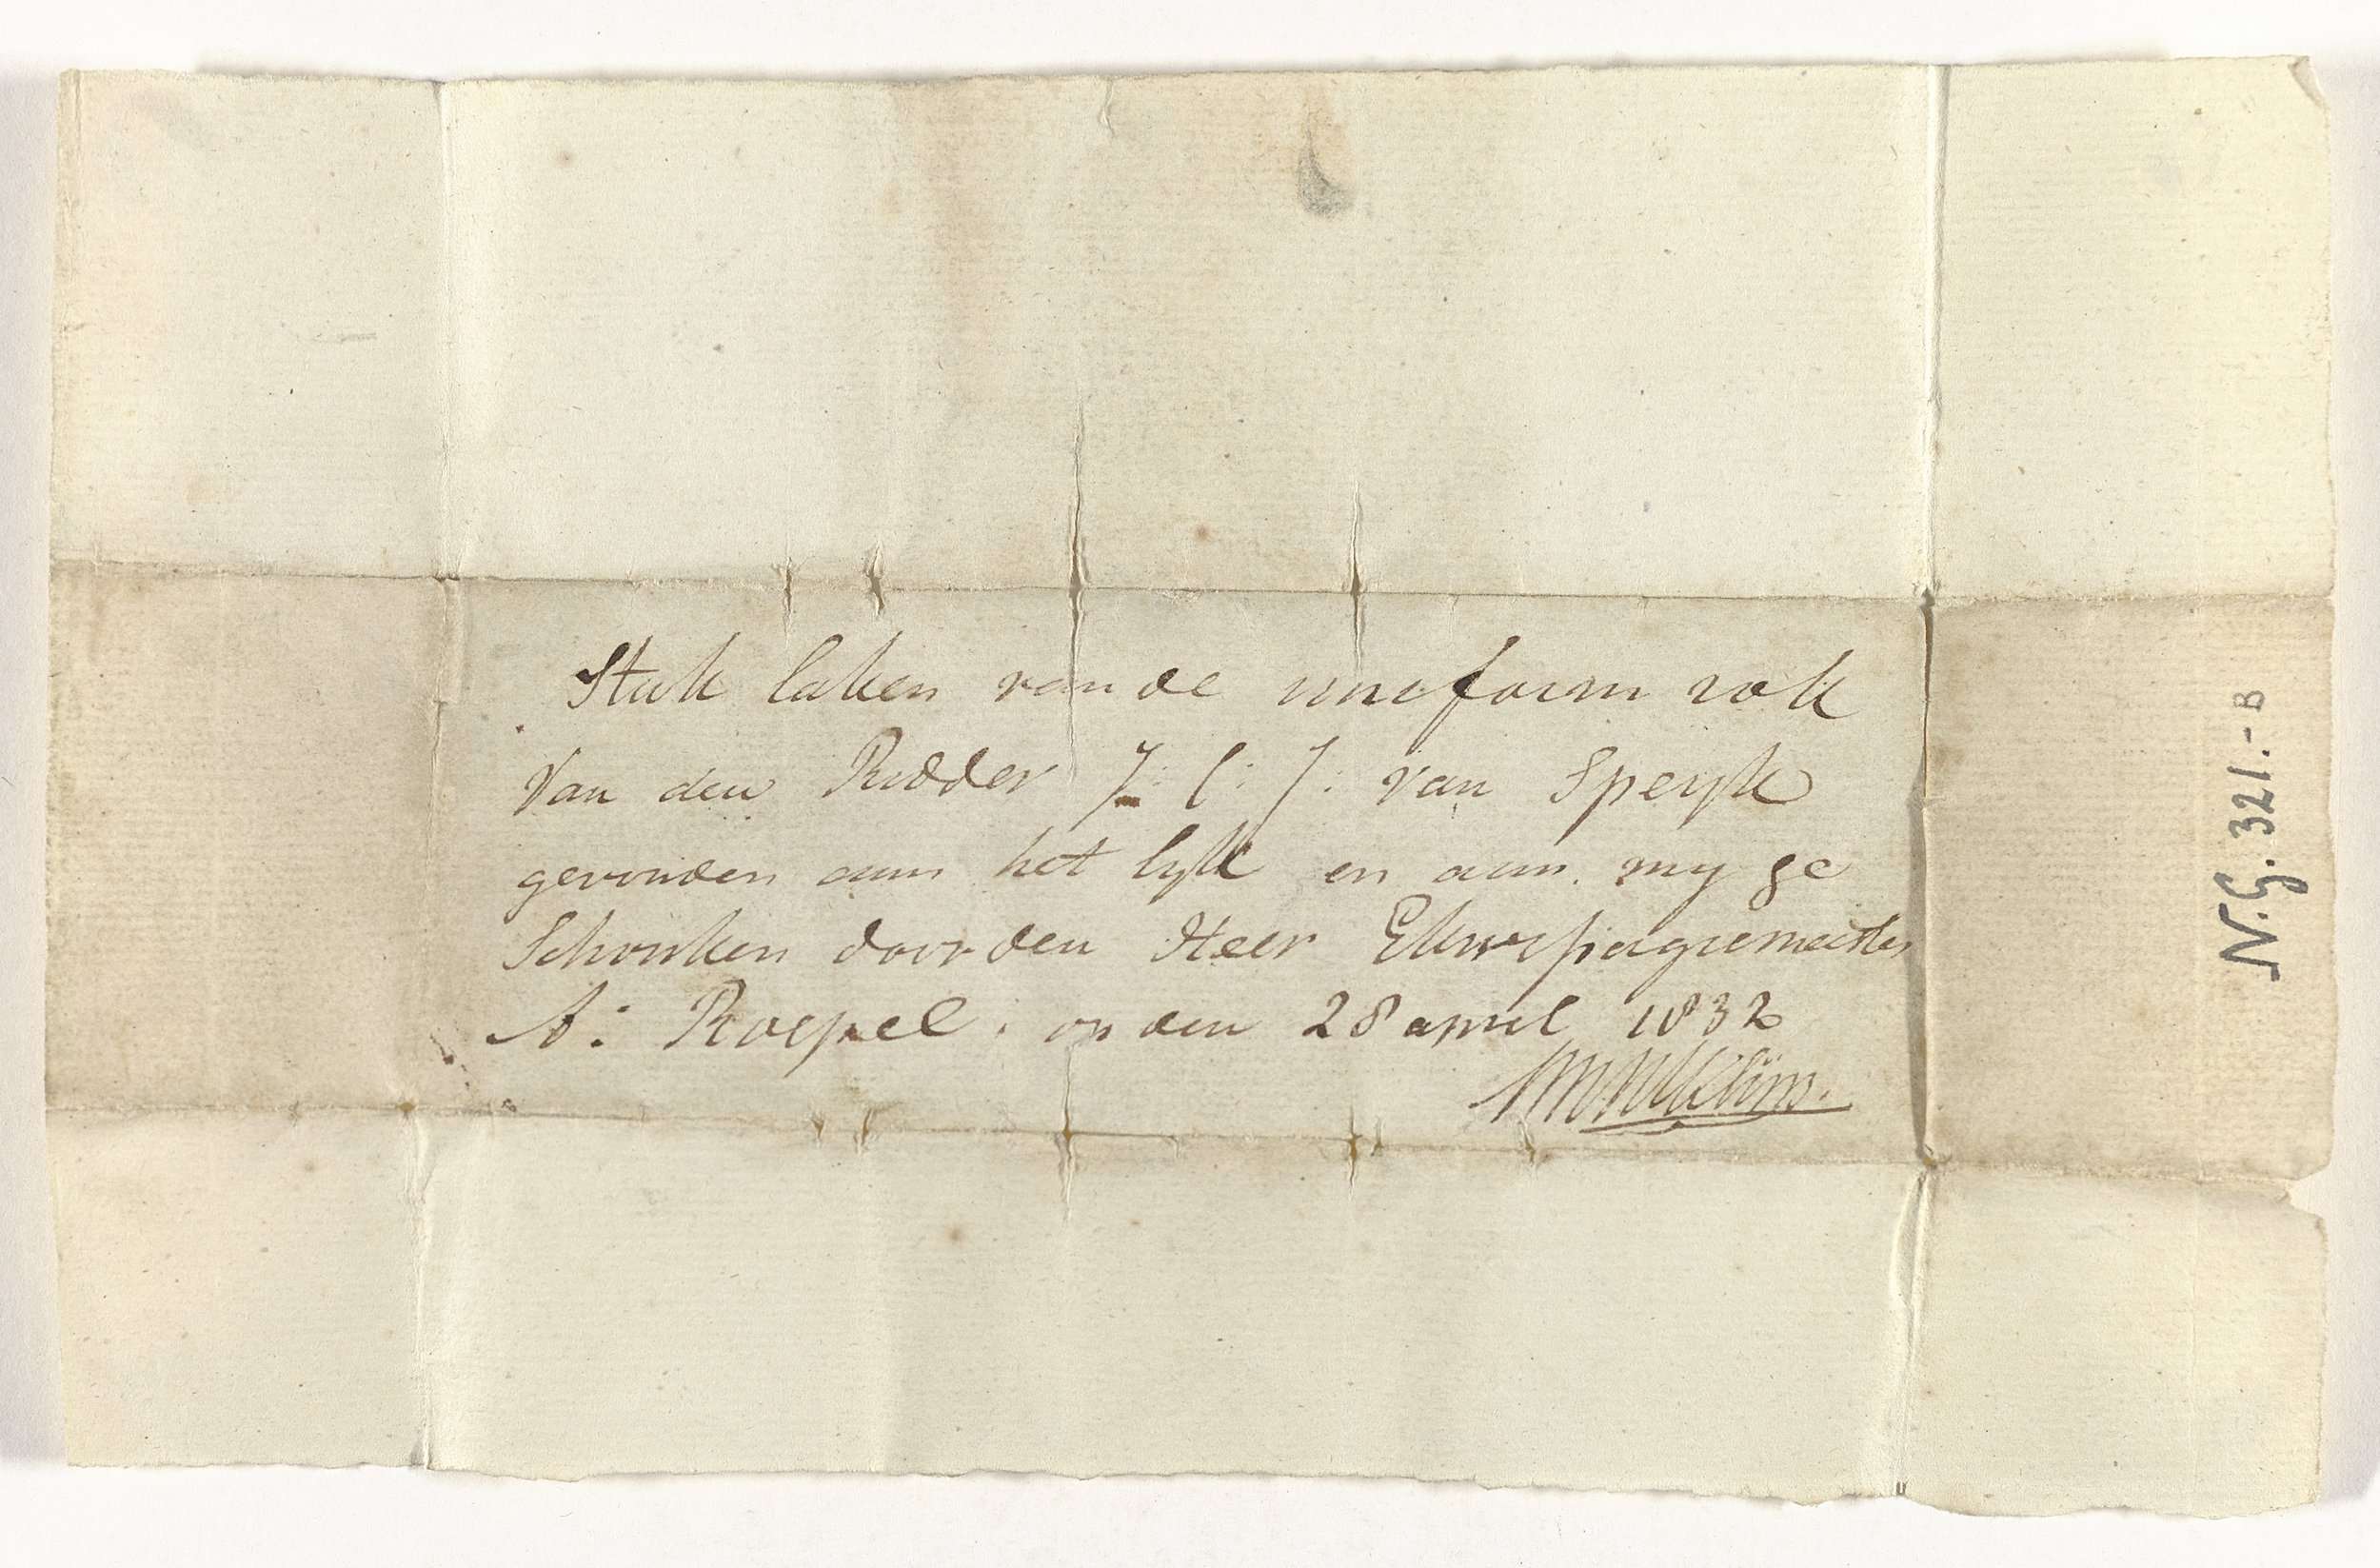 Stuk laken van de uniform rok
Van den Ridder J: C: J: van Speyk
gevonden aan het lyk en aan my ge
Schonken door den Heer Ekwipagiemeester
A: Roepel. op den 28 april 1832
N.G. 321.-B